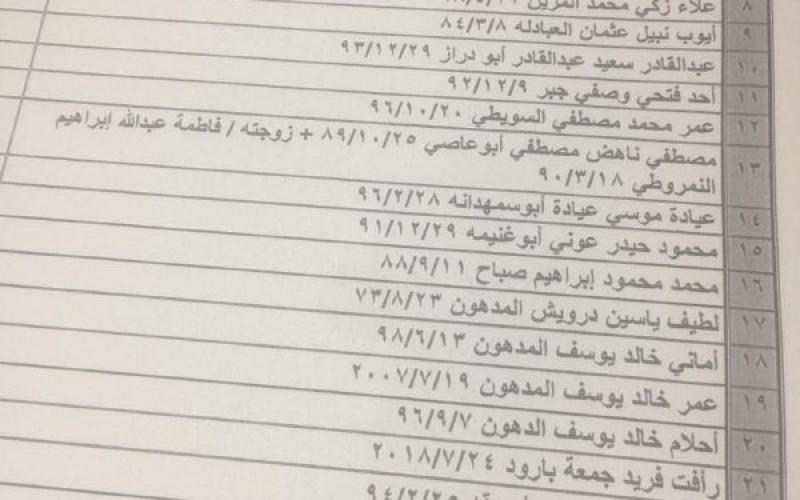 ٨ علاء زكي محمد المزين
٩ أيوب نبيل عثمان العبادله ٨٤/٣/٨
١٠ عبدالقادر سعيد عبدالقادر أبو دراز ٩٣/١٢/٢٩
١١ أحد فتحي وصفي جبر ٩٢/١٢/٩
١٢ عمر محمد مصطفي السويطي ٩٦/١٠/٢٠
١٣ مصطفي ناهض مصطفي أبوعاصي ٨٩/١٠/٢٥ + زوجته / فاطمة عبدالله إبراهيم
النمروطي ٩٠/٣/١٨
١٤ عيادة موسي عيادة أبوسمهدانه ٩٦/٢/٢٨
١٥ محمود حيدر عوني أبوغنيمه ٩١/١٢/٢٩
١٦ محمد محمود إبراهيم صباح ٨٨/٩/١١
١٧ لطيف ياسين درويش المدهون ٧٣/٨/٢٣
١٨ أماني خالد يوسف المدهون ٩٨/٦/١٣
١٩ عمر خالد يوسف المدهون ٢٠٠٧/٧/١٩
٢٠ أحلام خالد يوسف الدهون ٩٦/٩/٧
٢١ رأفت فريد جمعة بارود ٢٠١٨/٧/٢٤